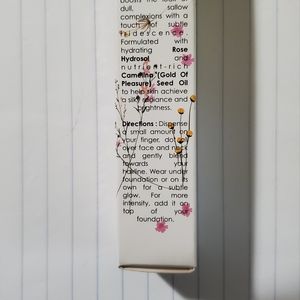 boosts the look of
dull, sallow
complexions with a
touch of subtle
iridescence.
Formulated with
hydrating Rose
Hydrosol and
nutrient-rich
Camelina (Gold Of
Pleasure) Seed Oil
to help skin achieve
a silky radiance and
brightness.
Directions : Dispense
a small amount
your finger, dot
over face and neck
and gently blend
towards your
hairline. Wear under
foundation or on its
own for a subtle
glow. For more
intensity, add it on
top of your
foundation.